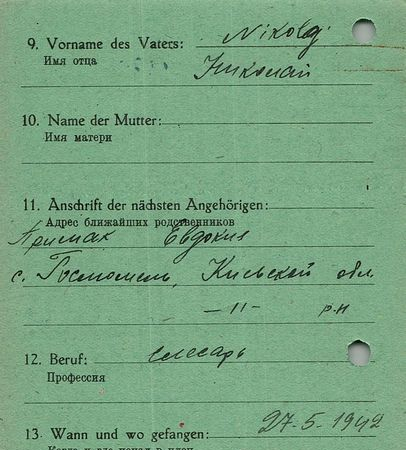 9. Vorname des Vaters: Nikolaj
Имя отца Николай
10. Name der Mutter:
Имя матери
11. Anschrift der nächsten Angehörigen:
Адрес ближайших родственников
Примак Евдокия
с. Гостомель, Киевской обл
—11— р-н
12. Beruf: слесарь
Профессия
13. Wann und wo gefangen: 27-5-1942
Когда и где попал в плен